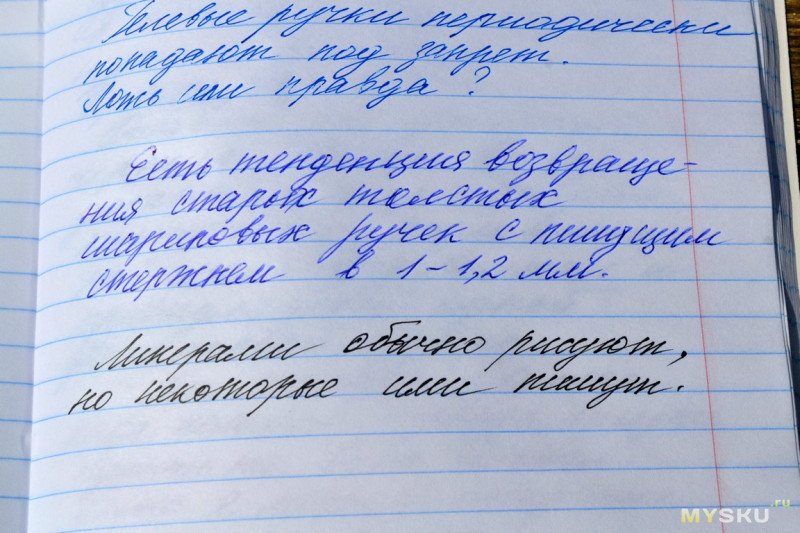 Гелевые ручки периодически
попадают под запрет.
Ложь или правда?
Есть тенденция возвраще-
ния старых толстых
шариковых ручек с пишущим
стержнем в 1-1,2 мм.
Линерами обычно рисуют,
но некоторые ими пишут.
MYSKU.ru